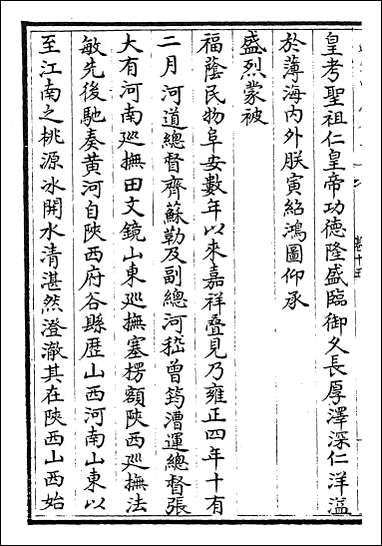 皇考聖祖仁皇帝功德隆盛臨御久長厚澤深仁洋溢
於薄海内外朕寅紹鴻圖仰承
盛烈蒙被
福蔭民物阜安數年以來嘉祥疊見乃雍正四年十有
二月河道總督齊蘇勒及副總河嵇曾筠漕運總督張
大有河南巡撫田文鏡山東巡撫塞楞額陝西巡撫法
敏先後馳奏黃河自陝西府谷縣歴山西河南山東以
至江南之桃源冰開水清湛然澄澈其在陝西山西始
卷十五